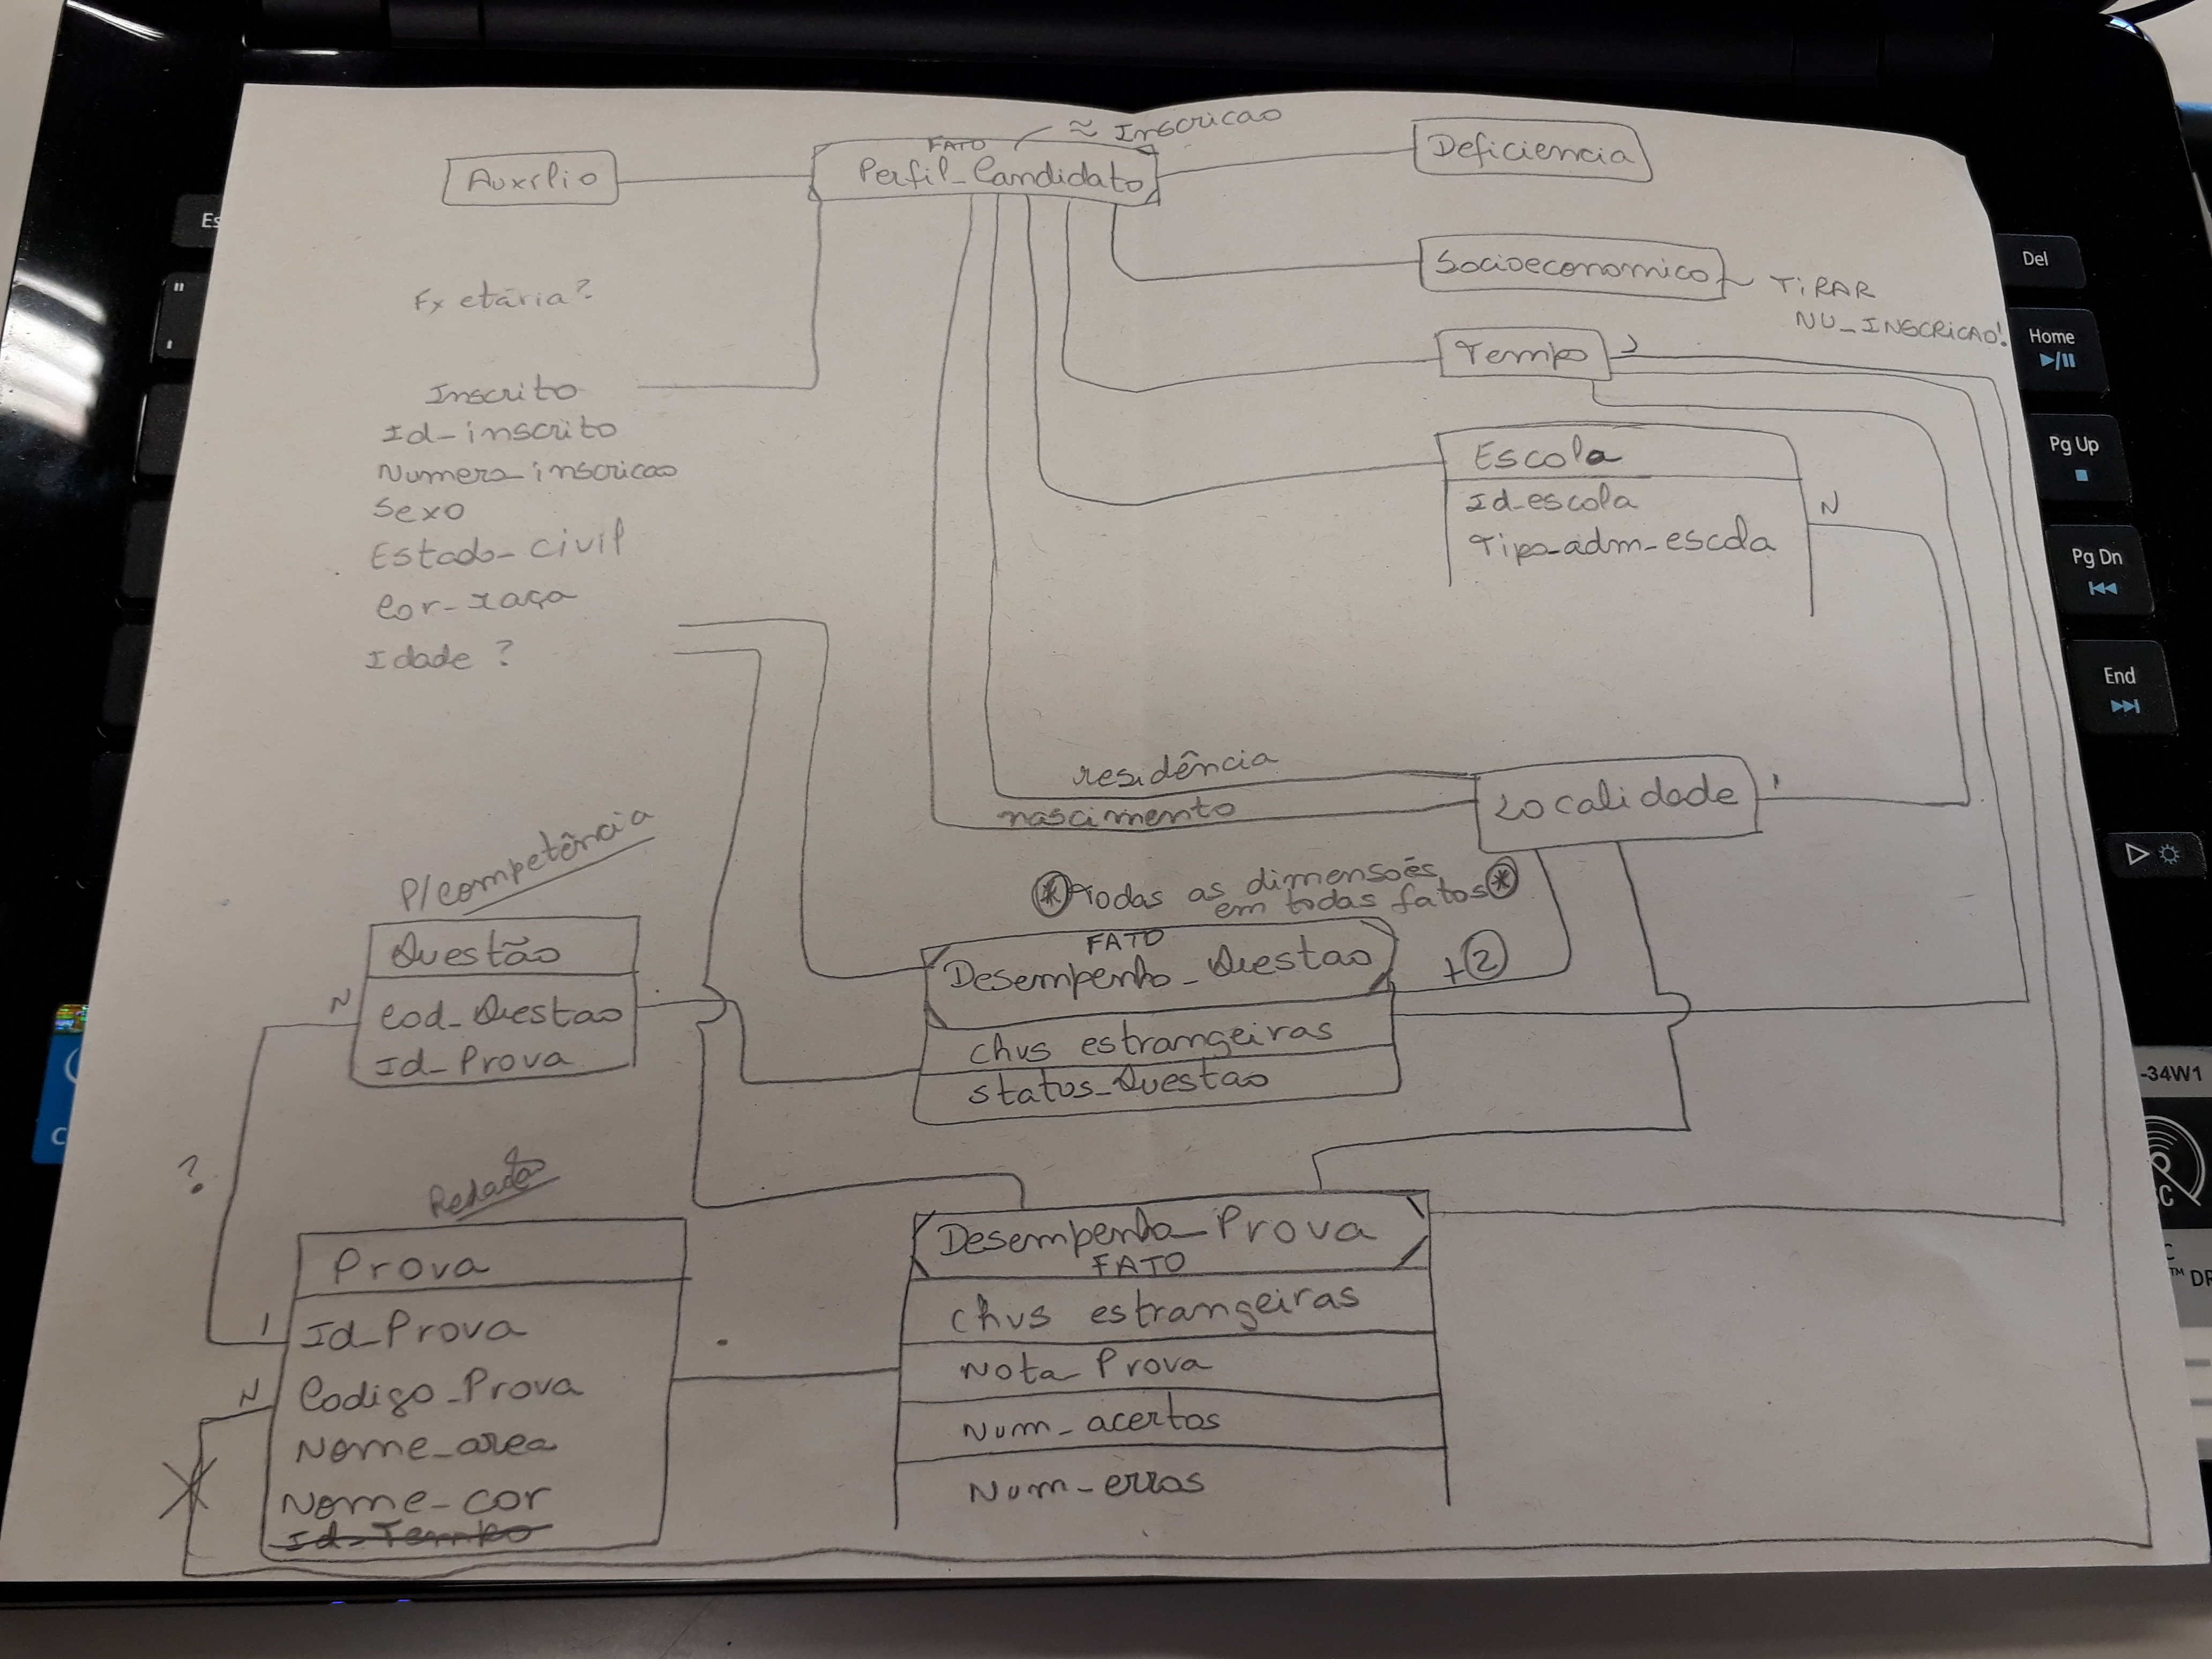 ≈ Inscricao
FATO
Perfil_Candidato
Auxílio
Deficiencia
Socioeconomico
TIRAR
NU_INSCRICAO!
Fx etária?
Tempo
1
Inscrito
Id_inscrito
Numero_inscricao
Sexo
Estado_civil
Cor_raça
Idade ?
Escola
Id_escola
Tipo_adm_escola
N
residência
nascimento
Localidade
1
P/competência
* Todas as dimensões
em todas fatos *
Questão
Cod_Questao
Id_Prova
N
FATO
Desempenho_Questao
+2
chvs estrangeiras
status_Questao
?
Redação
Prova
1
Id_Prova
N
Codigo_Prova
Nome_area
Nome_cor
Id_Tempo
Desempenho_Prova
FATO
chvs estrangeiras
Nota_Prova
Num_acertos
Num_erros
Es
"
'
Del
Home
Pg Up
Pg Dn
End
-34W1